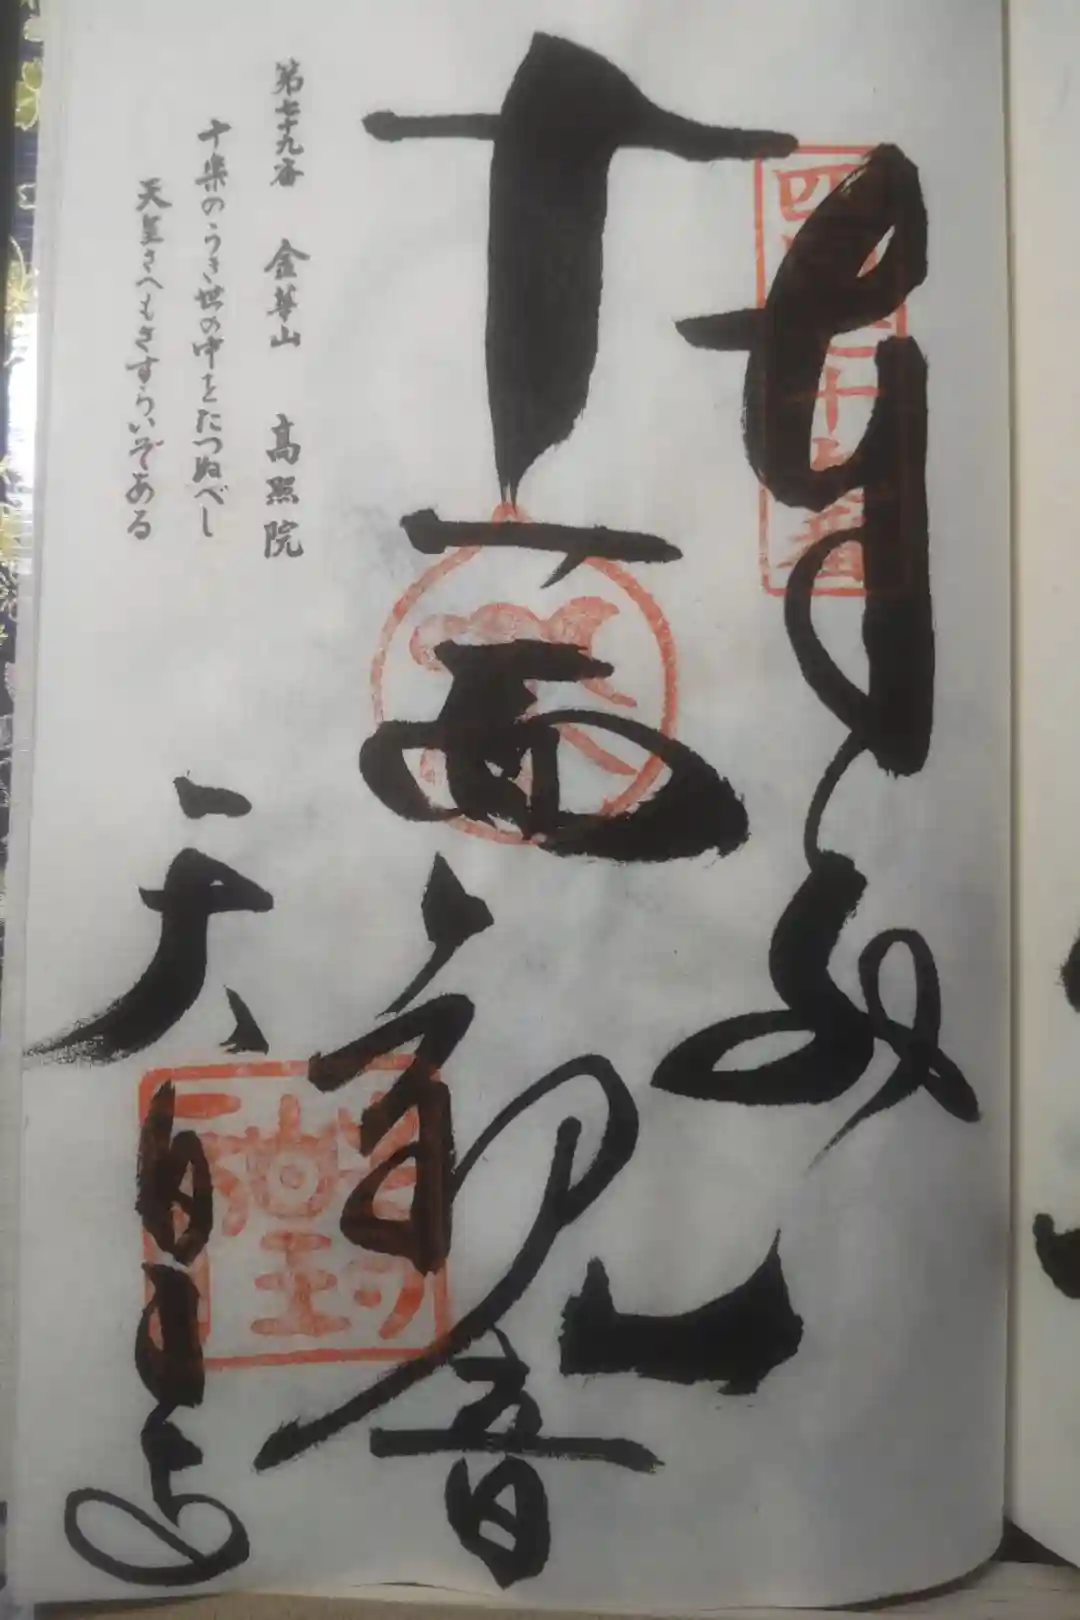 奉納
四国七十九番
十一面観音
天皇寺
第七十九番　金華山　高照院
十楽のうき世の中をたつぬべし
天皇さへもさすらいぞある